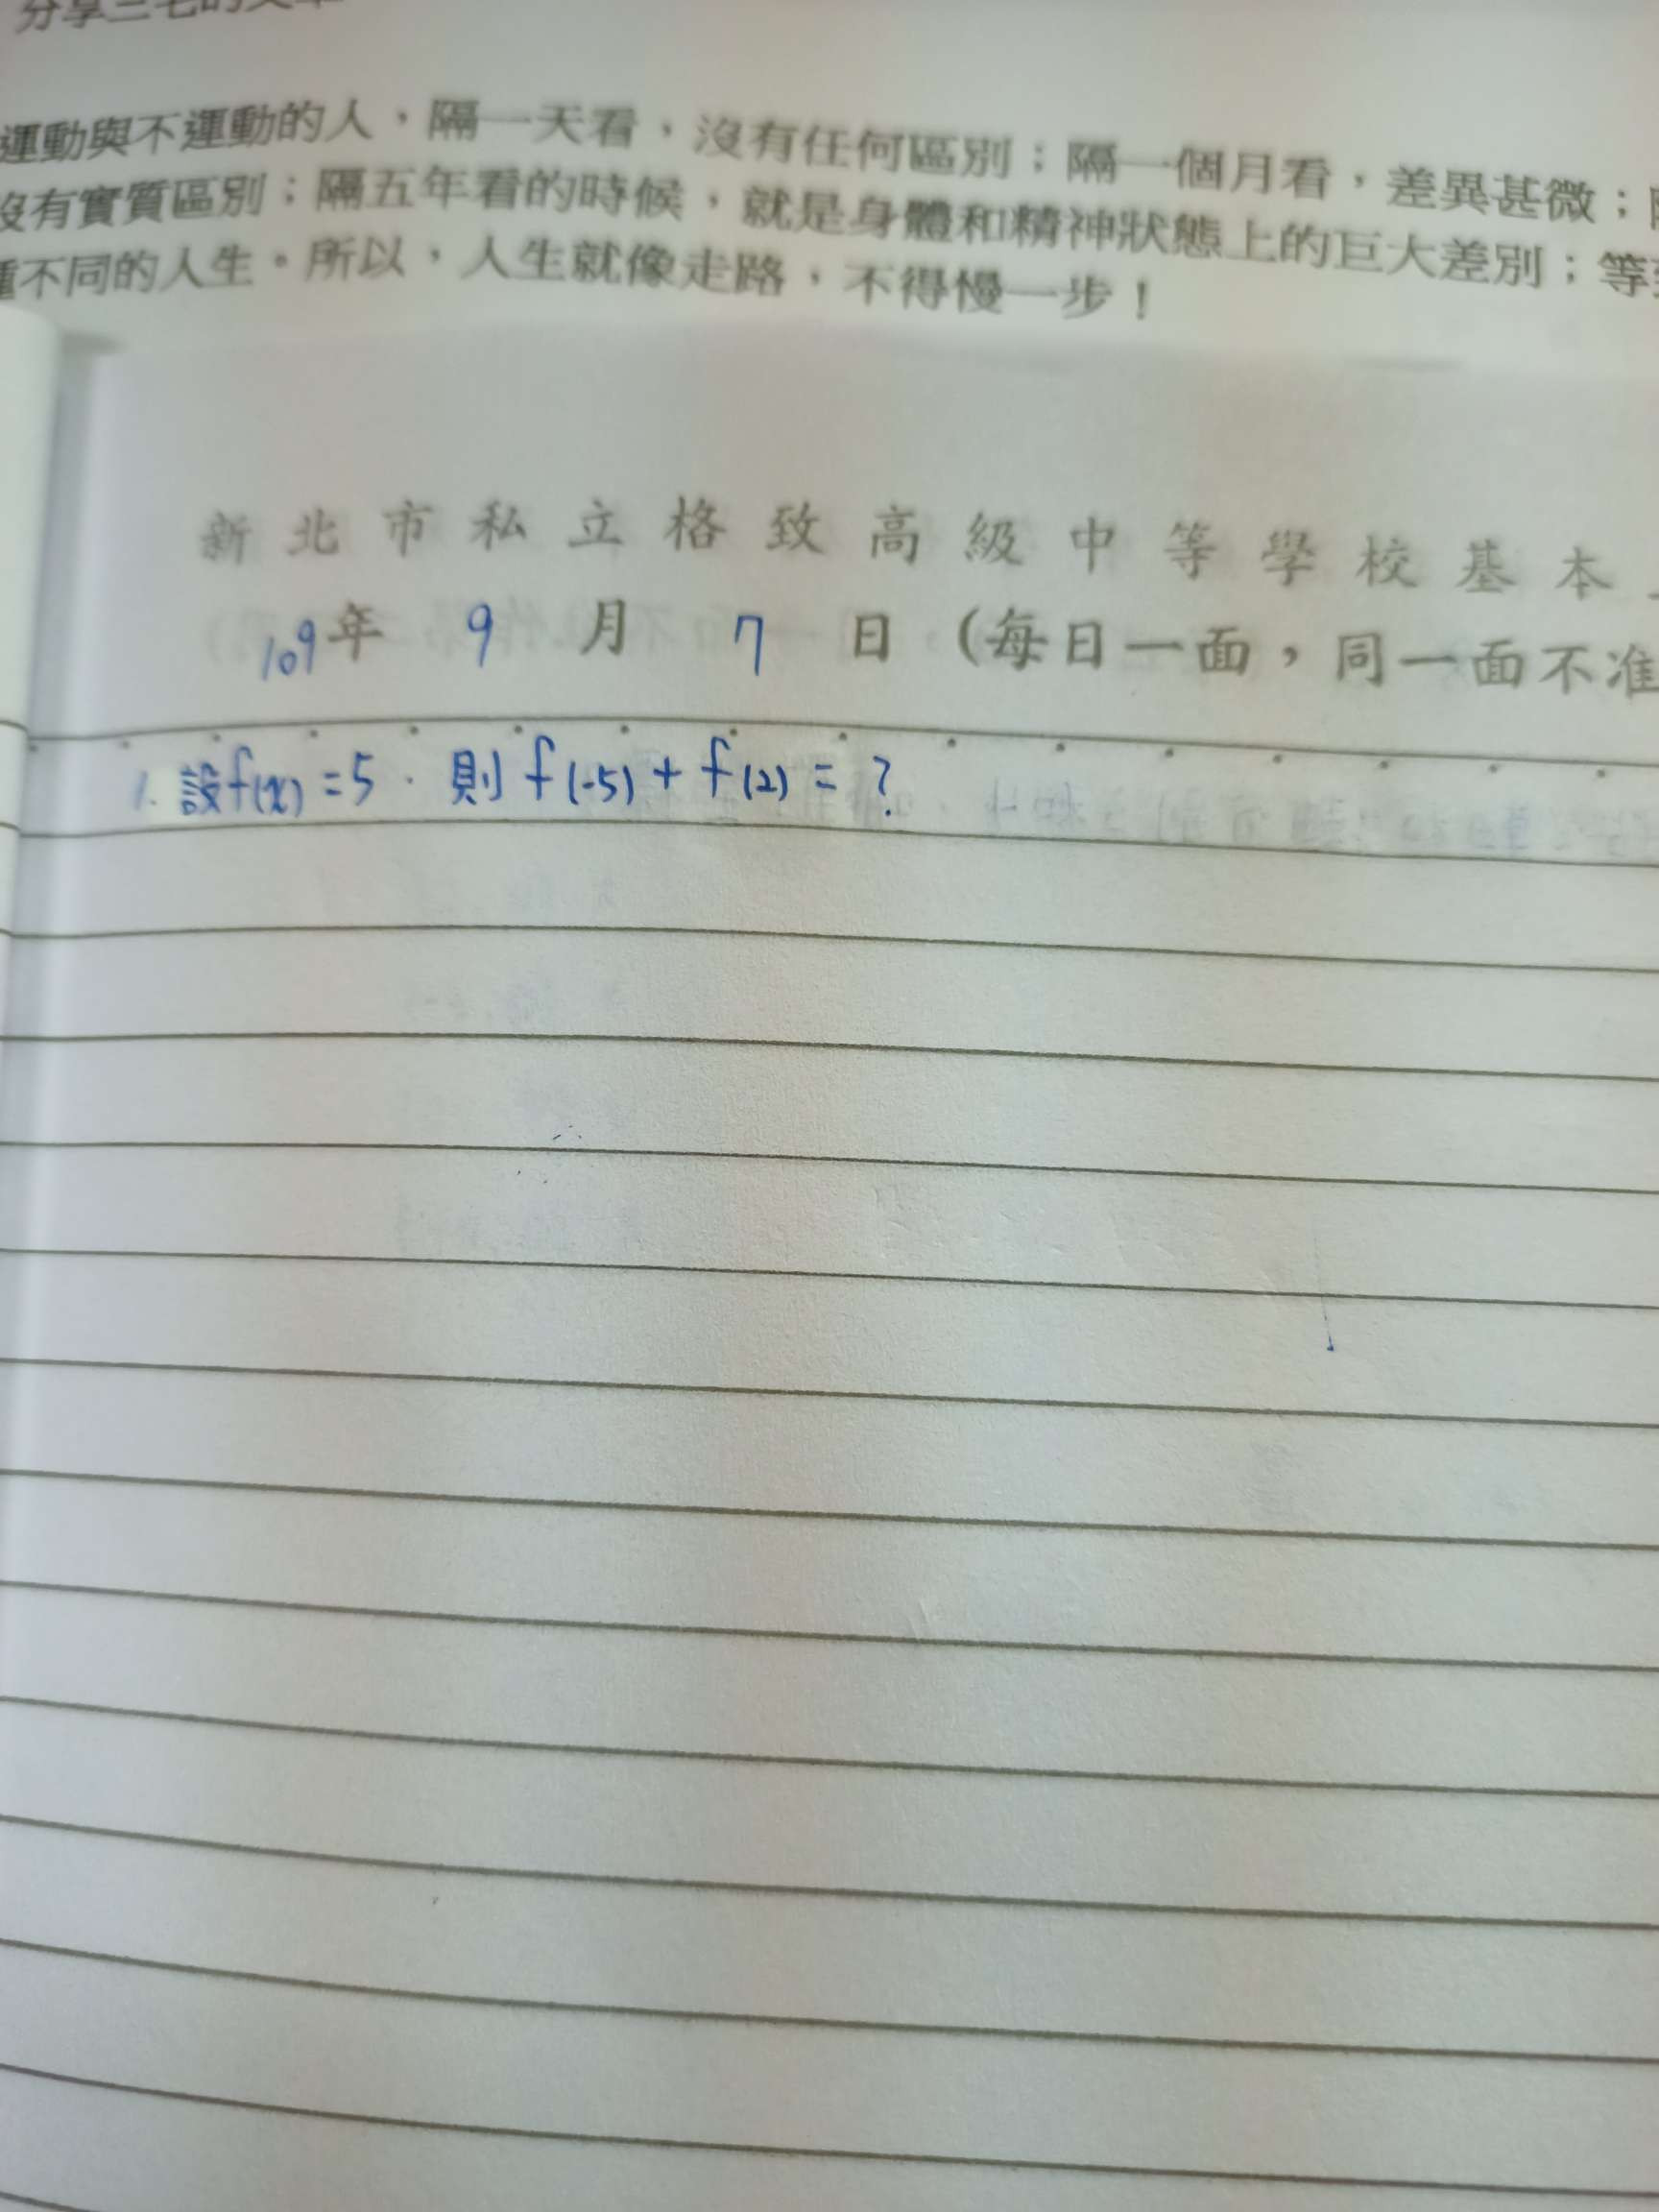 分享三宅的文章
運動與不運動的人，隔一天看，沒有任何區別；隔一個月看，差異甚微；
沒有實質區別；隔五年看的時候，就是身體和精神狀態上的巨大差別；等
種不同的人生。所以，人生就像走路，不得慢一步！
新北市私立格致高級中等學校基本
109年 9 月 7 日（每日一面，同一面不准
1. 設f(x)=5．則f(-5)+f(2)=？